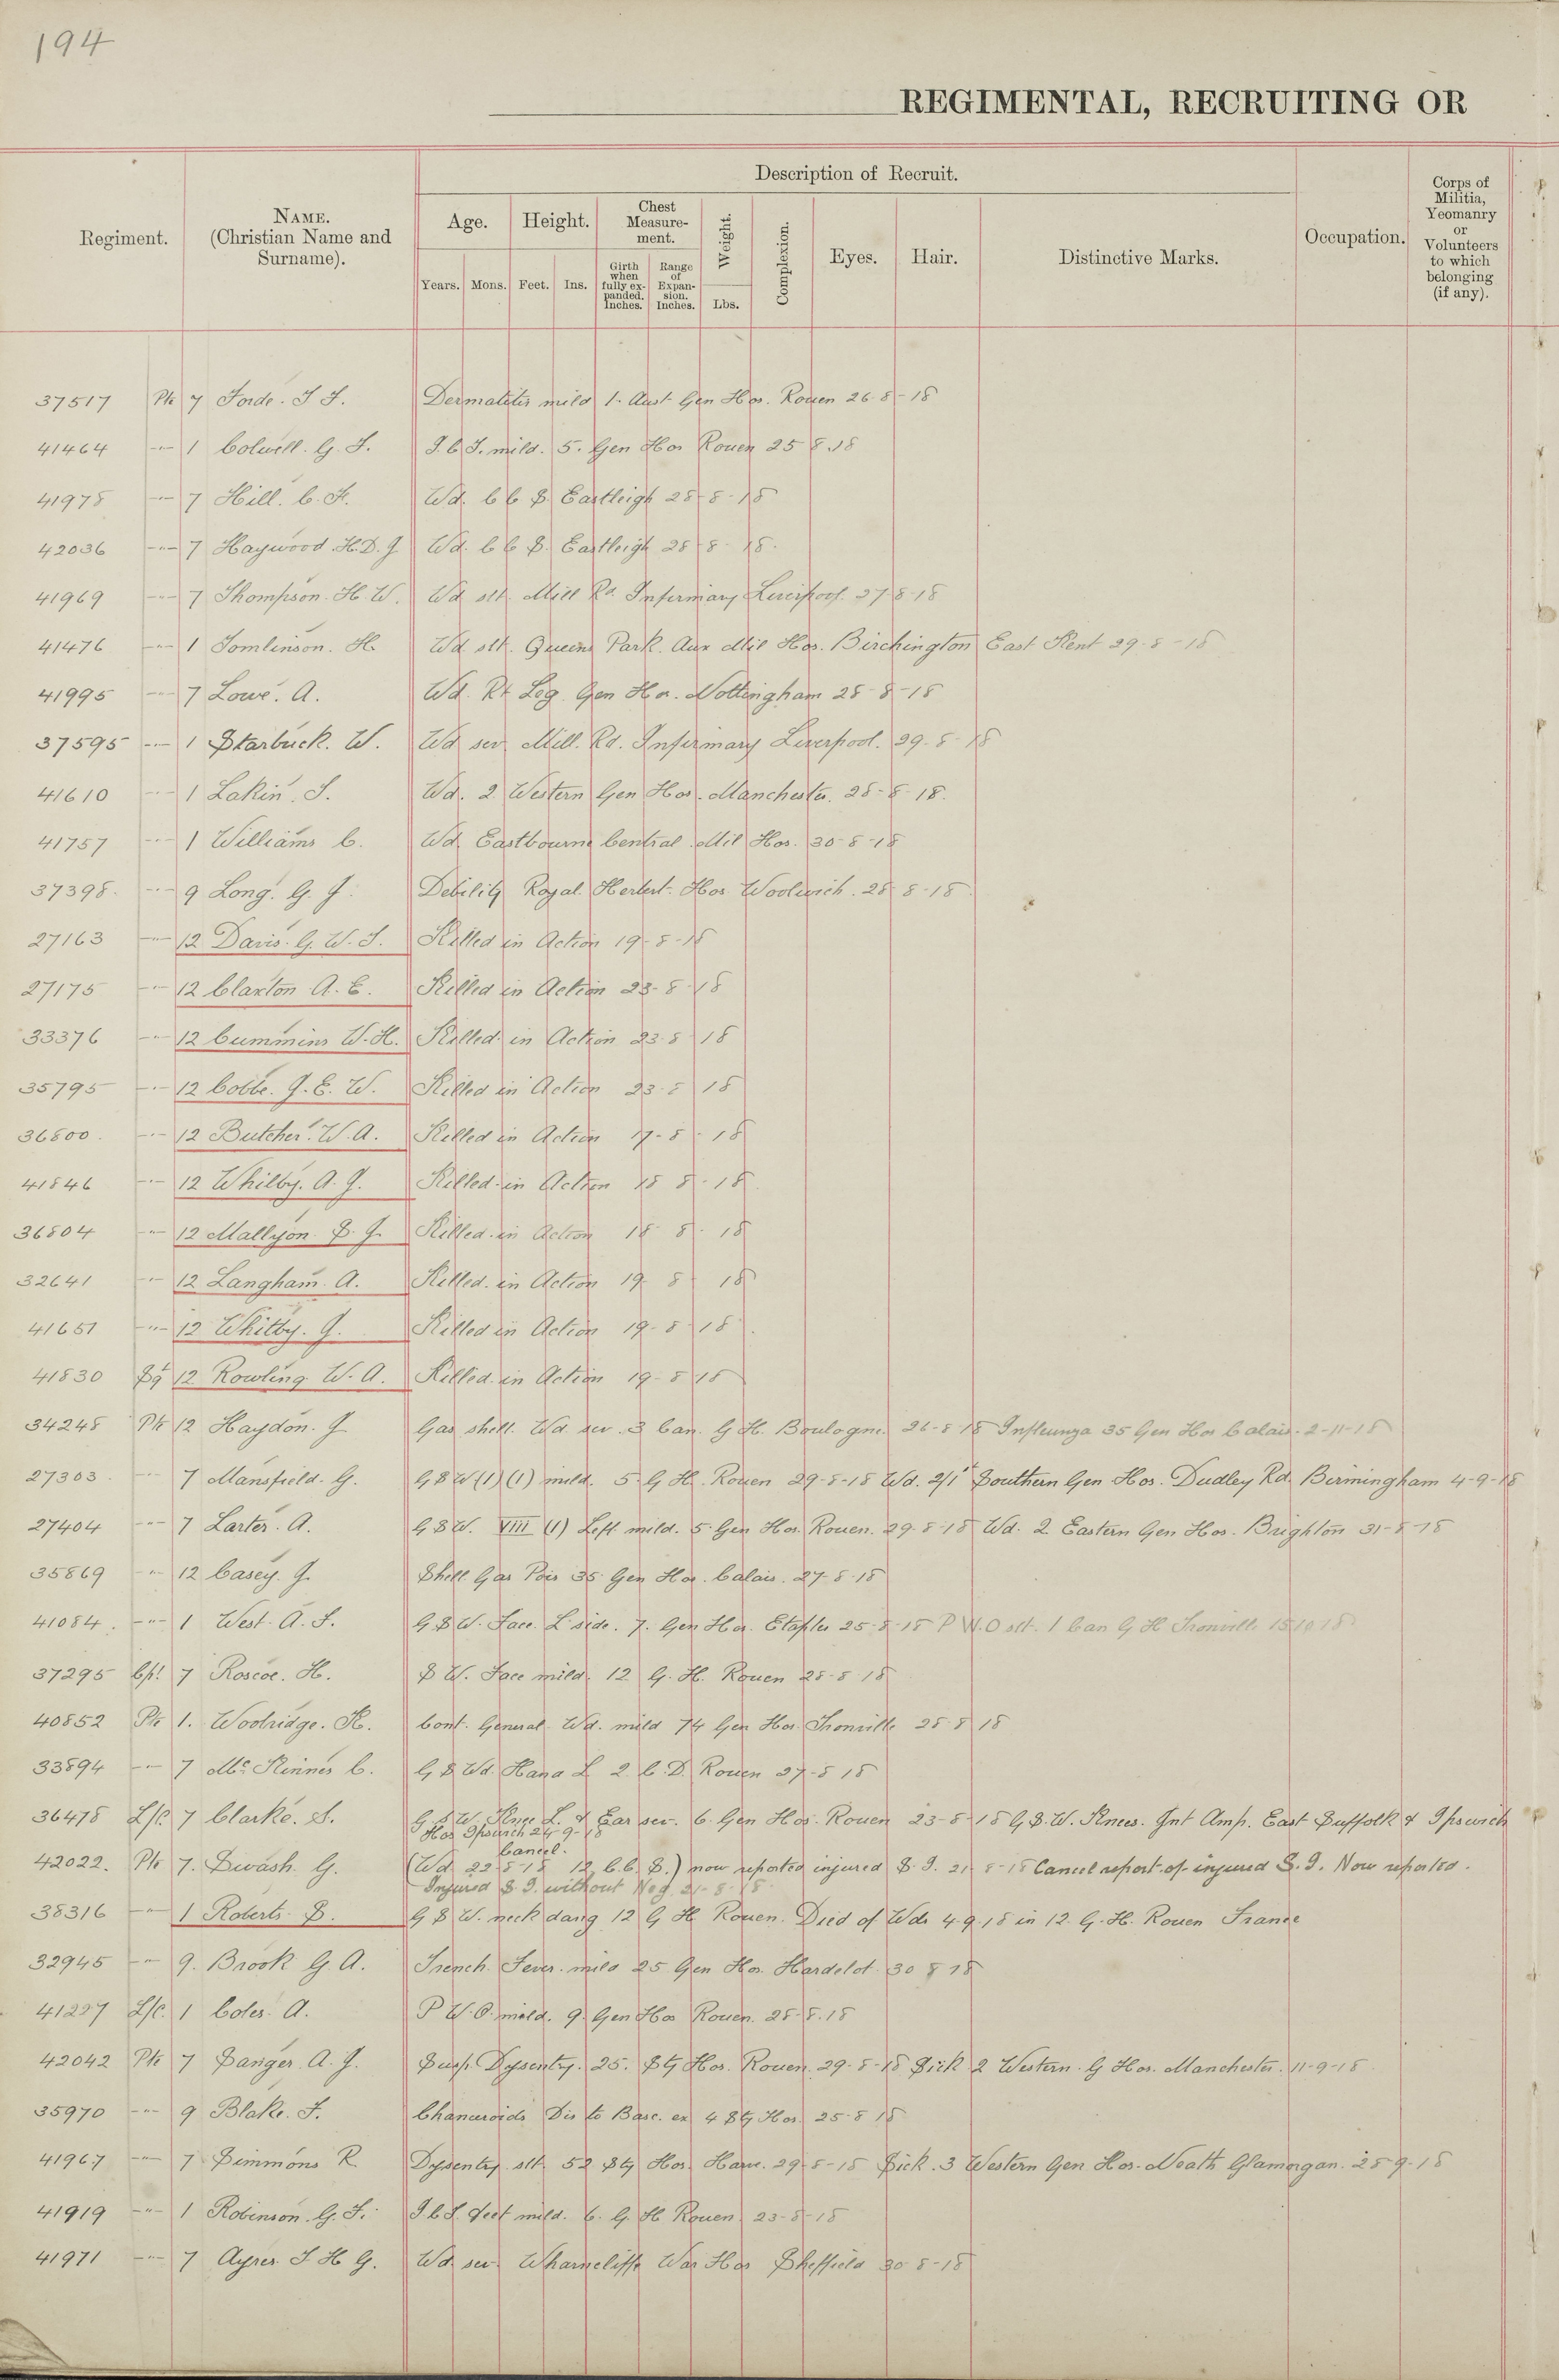 194
REGIMENTAL, RECRUITING OR
Regiment. NAME. (Christian Name and Surname). Description of Recruit. Occupation. Corps of Militia, Yeomanry or Volunteers to which belonging (if any).
Age. Height. Chest Measure-ment. Weight. Complexion. Eyes. Hair. Distinctive Marks.
Years. Mons. Feet. Ins. Girth when fully ex-panded. Inches. Range of Expan-sion. Inches. Lbs.
37517 Pte 7 Forde. J F. Dermatitis mild 1. Aust Gen Hos. Rouen 26-8-18
41464 -"- 1 Colwell. G. F. I. C. T. mild. 5. Gen Hos Rouen 25 8.18
41978 -"- 7 Hill. C. F. Wd. C C S. Eastleigh 28-8-18
42036 -"- 7 Haywood. H. D. J Wd. C C S. Eastleigh 28-8-18.
41969 -"- 7 Thompson. H. W. Wd slt. Mill Rd. Infirmary Liverpool. 27-8-18
41476 -"- 1 Tomlinson. H. Wd slt. Queens Park. Aux Mil Hos. Birchington East Kent 29-8-18
41995 -"- 7 Lowe. A. Wd. Rt Leg. Gen Hos. Nottingham 28-8-18
37595 -"- 1 Starbuck. W. Wd sev. Mill. Rd. Infirmary Liverpool. 29.8-18
41610 -"- 1 Lakin. T. Wd. 2 Western Gen Hos. Manchester. 28-8-18.
41757 -"- 1 Williams C. Wd. Eastbourne Central Mil Hos. 30-8-18
37398. -"- 9 Long. G. J. Debility Royal Herbert. Hos Woolwich. 28-8-18
27163 -"- 12 Davis. G. W. T. Killed in Action 19-8-18
27175 -"- 12 Claxton A. E. Killed in Action 23-8-18
33376 -"- 12 Cummins W. H. Killed in Action 23-8-18
35795 -"- 12 Cobbe. J. E. W. Killed in Action 23-8-18
36800. -"- 12 Butcher. W. A. Killed in Action 17-8-18
41846 -"- 12 Whilby. A. J. Killed in Action 18 8-18
36804 -"- 12 Mallyon. S. J. Killed in Action 18 8-18
32641 -"- 12 Langham. A. Killed. in Action 19. 8 18
41651 -"- 12 Whitby. J. Killed in Action 19-8-18
41830 Sgt 12 Rowling W. A. Killed in Action 19-8-18
34248 Pte 12 Haydon. J Gas shell. Wd sev. 3 Can. G H. Boulogne. 26-8-18 Influenza 35 Gen Hos Calais. 2-11-18
27303. -"- 7 Mansfield. G. G S W (1) (1) mild. 5. G H. Rouen 29-8-18 Wd. 2/1st Southern Gen Hos. Dudley Rd. Birmingham 4-9-18
27404 -"- 7 Larter. A. G. S. W. VIII (1) Left mild. 5. Gen Hos. Rouen. 29-8-18 Wd. 2 Eastern Gen Hos. Brighton 31-8-18
35869 -"- 12 Casey. J. Shell Gas Pois 35 Gen Hos. Calais. 27-8-18
41084. -"- 1 West. A. F. G. S W. Face. L side. 7. Gen Hos. Etaples 25-8-18 P W. O slt. 1 Can G H Tronville 15.10.18
37295 Cpl 7 Roscoe. H. S W. Face mild. 12 G. H. Rouen 28-8-18
40852 Pte 1. Woolridge. K. Cont. General. Wd. mild 74 Gen Hos Tronville 28-8-18
33894 -"- 7 McKinnes C. G S Wd. Hand L 2. C. D. Rouen 27-8-18
36478 L/C. 7 Clarke. S. G. S W. Knee L. & Ear sev. 6. Gen Hos. Rouen 23-8-18 G. S. W. Knees. Gnt Amp. East Suffolk & Ipswich
Hos Ipswich 24-9-18
Cancel.
42022. Pte 7. Swash. G. (Wd 22-8-18 12 C. C. S.) now reported injured S. I. 21-8-18 Cancel report of injured S. I. Now reported.
Injured S I. without Neg. 21-8-18.
38316 -"- 1 Roberts. S. G S W. neck dang 12 G H Rouen. Died of Wds 4.9.18 in 12. G. H. Rouen France
32945 -"- 9. Brook G. A. Trench Fever. mild 25 Gen Hos. Hardelot 30 8 18
41227 L/C. 1 Coles. A. P W. O. mild. 9. Gen Hos Rouen. 28-8.18
42042 Pte 7 Sanger. A. J. Susp. Dysentry. 25. Sty Hos. Rouen. 29-8-18 Sick 2 Western. G Hos. Manchester. 11-9-18
35970 -"- 9 Blake. F. Chancroids Dis to Base. ex 4 Sty Hos. 25-8 18
41967 -"- 7 Simmons R Dysentry slt. 52 Sty Hos. Havre. 29-8-18 Sick. 3 Western Gen. Hos. Neath Glamorgan. 28-9-18
41919 -"- 1 Robinson. G. F. I C T. feet mild. 6. G. H Rouen. 23-8-18
41971 -"- 7 Ayres T H G. Wd sev. Wharncliffe War Hos Sheffield 30-8-18